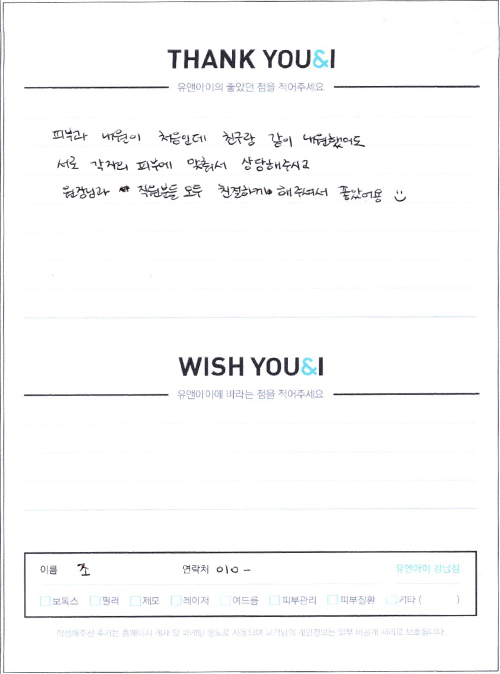 THANK YOU&I
유앤아이의 좋았던 점을 적어주세요
피부과 내원이 처음인데 친구랑 같이 내원했어도
서로 각자의 피부에 맞춰서 상담해주시고
원장님과 직원분들 모두 친절하게 해주셔서 좋았어용 :)
WISH YOU&I
유앤아이에 바라는 점을 적어주세요
이름 조 연락처 010 - 유앤아이 강남점
보톡스 필러 제모 레이저 여드름 피부관리 피부질환 기타 ( )
작성해주신 후기는 홈페이지 게재 및 마케팅 용도로 사용되며 고객님의 개인정보는 일부 비공개 처리로 보호됩니다.